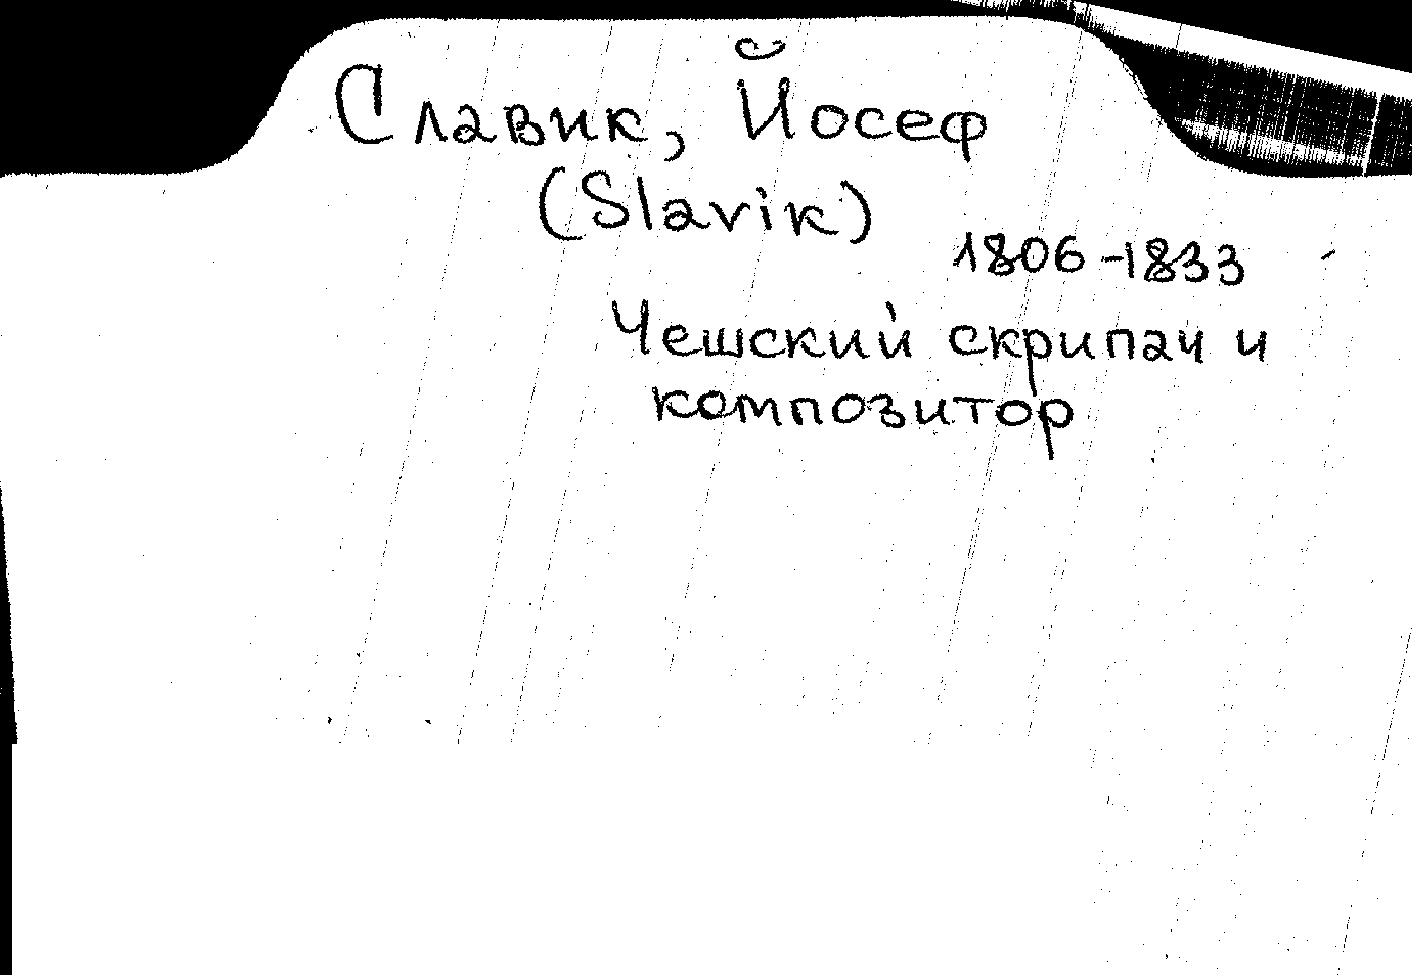 Славик, Йосеф
(Slavik)
1806-1833
Чешский скрипач и
композитор